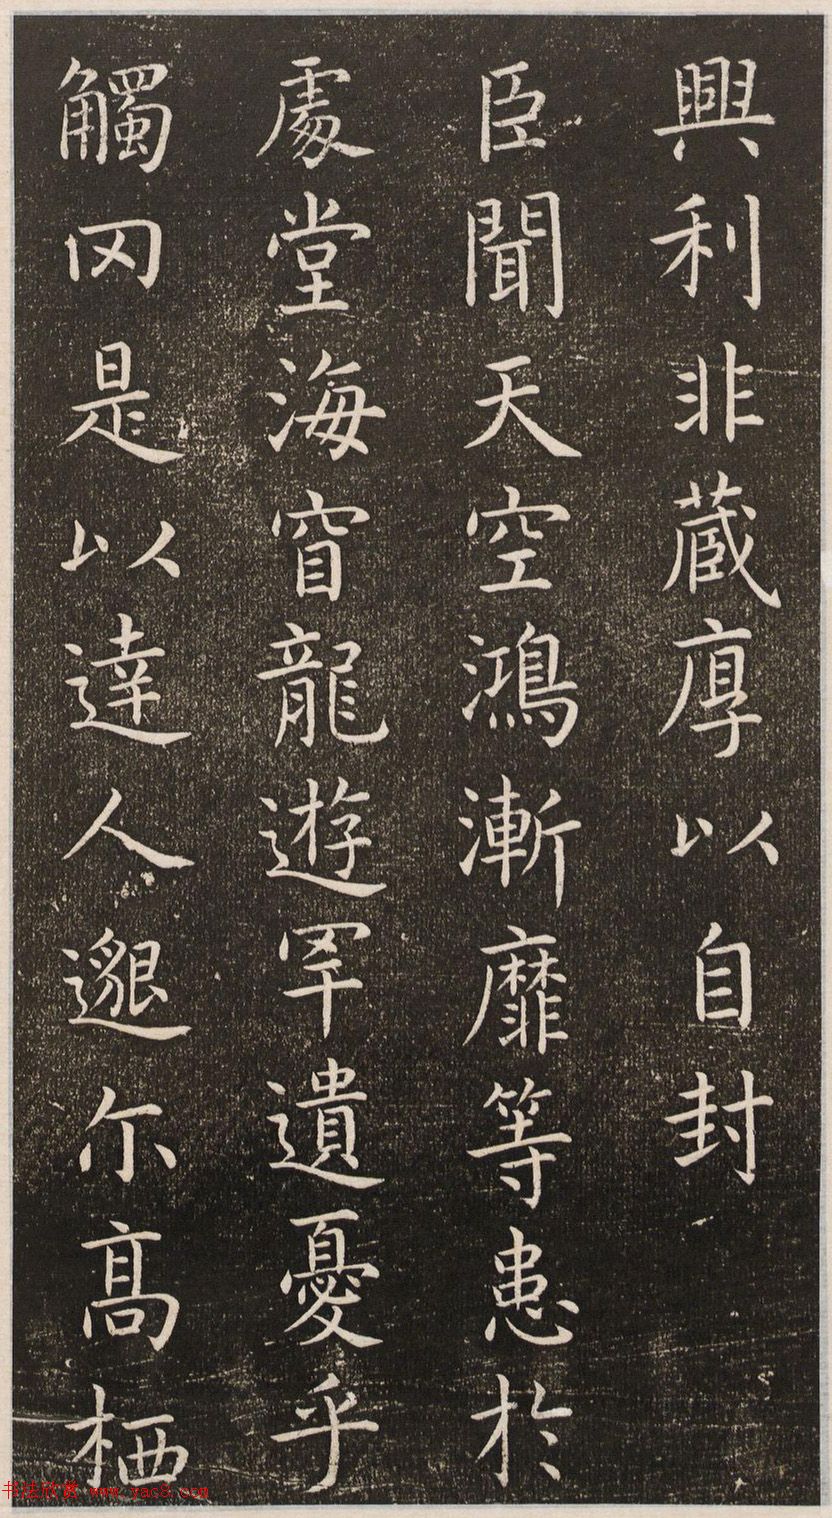 興利非蔵厚以自封
臣聞天空鴻漸靡等患於
處堂海窅龍遊罕遺憂乎
觸冈是以達人邈尓高栖
书法欣赏 www.yac8.com